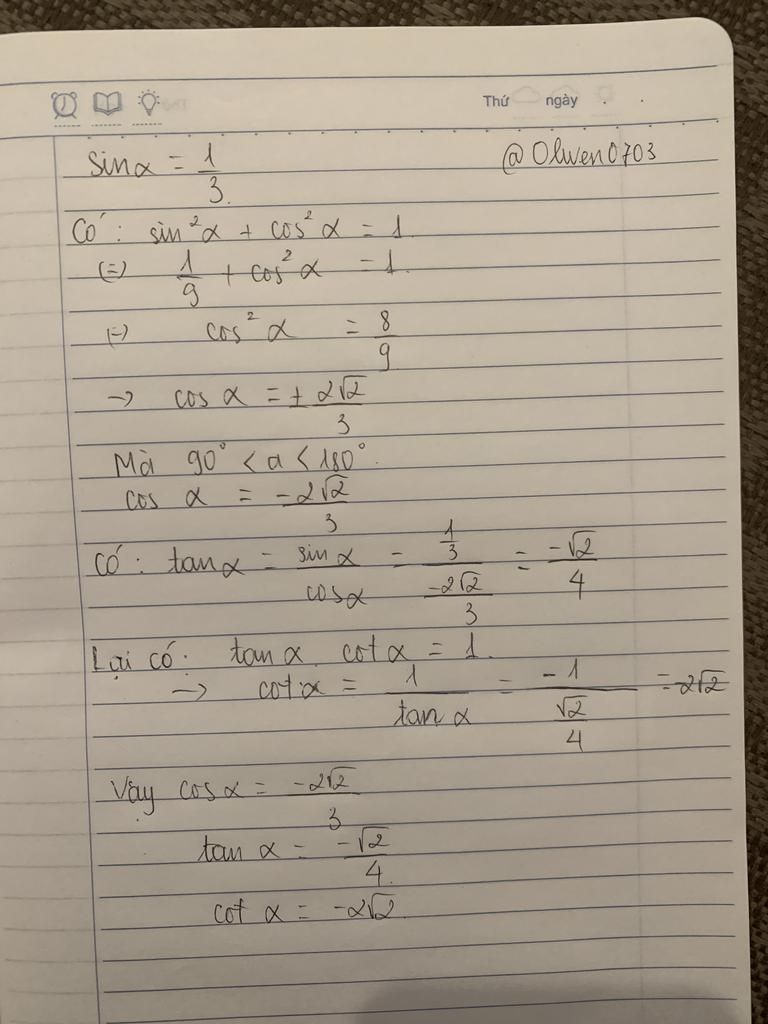 Thứ ngày
sin α = 1/3.
@Olwen0703
Có: sin²α + cos²α = 1
(=) 1/9 + cos²α = 1.
(=) cos²α = 8/9
→ cos α = ± 2√2/3
Mà 90° < a < 180°.
cos α = -2√2/3
Có: tan α = sin α/cos α = (1/3)/(-2√2/3) = -√2/4
Lại có: tan α. cot α = 1.
→ cot α = 1/tan α = -1/(√2/4) = -2√2
Vậy cos α = -2√2/3
tan α = -√2/4.
cot α = -2√2.